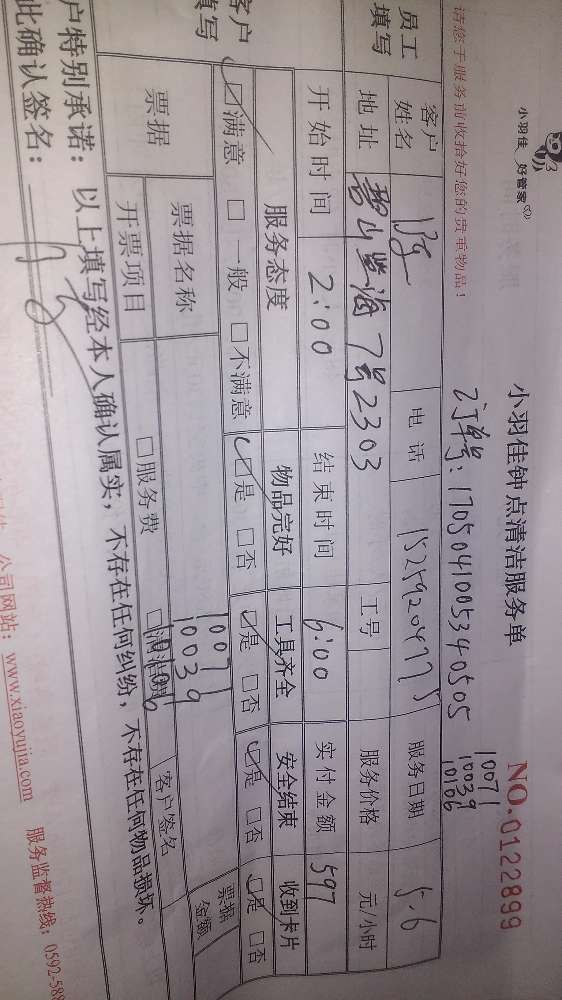 小羽佳 好管家
小羽佳钟点清洁服务单
NO.0122899
请您于服务前收拾好您的贵重物品！
订单号：170504100534050505
10071
10039
10186
员工填写
客户姓名
电话
服务日期 5.6
地址 碧山临海7号2303
工号
服务价格 元/小时
开始时间 2:00
结束时间 6:00
实付金额 597
客户填写
服务态度
物品完好
工具齐全
安全结束
收到卡片
☑满意 □一般 □不满意
☑是 □否
☑是 □否
☑是 □否
☑是 □否
票据
票据名称
10071
10039
票据金额
开票项目
□服务费
客户签名
户特别承诺：以上填写经本人确认属实，不存在任何纠纷，不存在任何物品损坏。
此确认签名：
公司网站：www.xiaoyujia.com 服务监督热线：0592-588